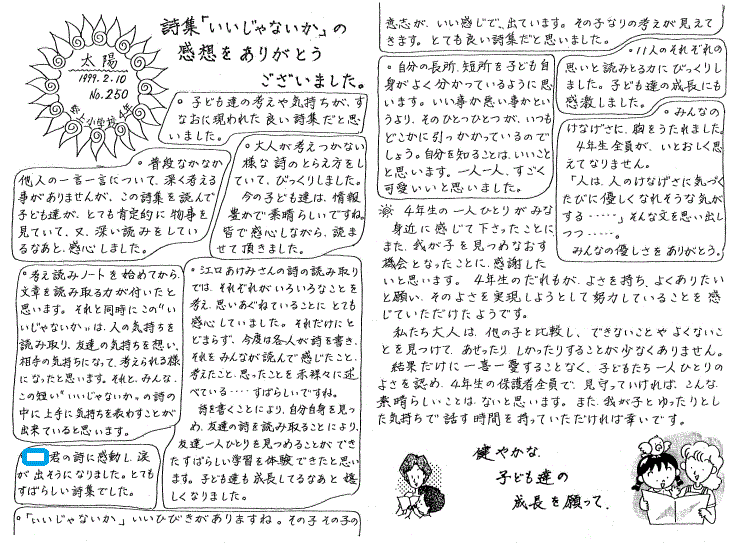 太陽
1999.2.10
No.250
小学校4年
詩集「いいじゃないか」の
感想をありがとう
ございました。
○子ども達の考えや気持ちが、す
なおに現われた良い詩集だと思
いました。
○普段なかなか
他人の一言一言について、深く考える
事がありませんが、この詩集を読んで
子ども達が、とても肯定的に物事を
見ていて、又、深い読みをしてい
るなあと、感心しました。
○大人が考えつかない
様な詩のとらえ方をし
ていて、びっくりしました。
今の子ども達は、情報
豊かで素晴らしいですね。
皆で感心しながら、読ませ
て頂きました。
○考え読みノートを始めてから、
文章を読み取る力が付いたと
思います。それと同時にこの"い
いじゃないか"は、人の気持ちを
読み取り、友達の気持ちを想い、
相手の気持ちになって、考えられる様
になったと思います。それと、みんな、
この短い"いいじゃないか"の詩の
中に上手に気持ちを表わすことが
出来ていると思います。
君の詩に感動し、涙
が出そうになりました。とても
すばらしい詩集でした。
○江口あけみさんの詩の読み取り
では、それぞれがいろいろなことを
考え、思いあぐねていることにとても
感心していました。それだけにと
どまらず、今度は各人が詩を書き、
それをみんなが読んで感じたこと、
考えたこと、思ったことを赤裸々に述
べている……すばらしいですね。
詩を書くことにより、自分自身を見つ
め、友達の詩を読み取ることにより、
友達一人ひとりを見つめることができ
たすばらしい学習を体験できたと思い
ます。子ども達も成長してるなあと嬉
しくなりました。
○「いいじゃないか」いいひびきがありますね。その子その子の
意志が、いい感じで、出ています。その子なりの考えが見えて
きます。とても良い詩集だと思いました。
○自分の長所、短所を子ども自
身がよく分かっているように思い
ます。いい事か悪い事かとい
うより、そのひとつひとつが、いつも
どこかに引っかかっているので
しょう。自分を知ることは、いいこと
と思います。一人一人、すごく
可愛いいと思いました。
○11人のそれぞれの
思いと読みとる力にびっくりし
ました。子ども達の成長にも
感激しました。
○みんなの
けなげさに、胸をうたれました。
4年生全員が、いとおしく思
えてなりません。
「人は、人のけなげさに気づく
たびに優しくなれそうな気が
する……」そんな文を思い出し
つつ……。
みんなの優しさをありがとう。
4年生の一人ひとりがみな
身近に感じて下さったことに
また、我が子を見つめなおす
機会となったことに、感謝した
いと思います。4年生のだれもが、よさを持ち、よくありたい
と願い、そのよさを実現しようとして努力していることを感
じていただけたようです。
私たち大人は、他の子と比較し、できないことやよくないこ
とを見つけて、あせったりしかったりすることが少なくありません。
結果だけに一喜一憂することなく、子どもたち一人ひとりの
よさを認め、4年生の保護者全員で、見守っていければ、こんな
素晴らしいことはないと思います。また、我が子とゆったりとし
た気持ちで話す時間を持っていただければ幸いです。
健やかな
子ども達の
成長を願って、